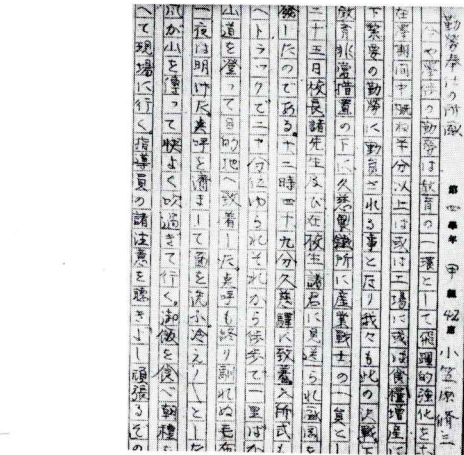 勤労奉仕の所感
第四學年 甲組 42席 小笠原脩三
今や學徒の勤労は教育の一環として飛躍的強化を
在學期間中概ね半分以上は或は工場に或は食糧増産に
下緊要の勤労に動員される事となり我々も此の決戰下
教育非常措置の下に久慈製鐵所に産業戰士の一員とし
二十五日校長諸先生及び在校生諸君に見送られ
發したのである。十二時四十九分久慈驛に致着入所式も
へトラックで二十分位ゆられそれから徒歩で一里ばか
山道を登って目的地へ致着した。点呼も終り馴れぬ毛布
一夜は明けた。点呼を濟まして面を洗ふ冷え〱とした
風が山を傳って快よく吹過ぎて行く。御飯を食べ朝禮
へて現場に行く。指導員の諸注意を聽きよし頑張るぞの